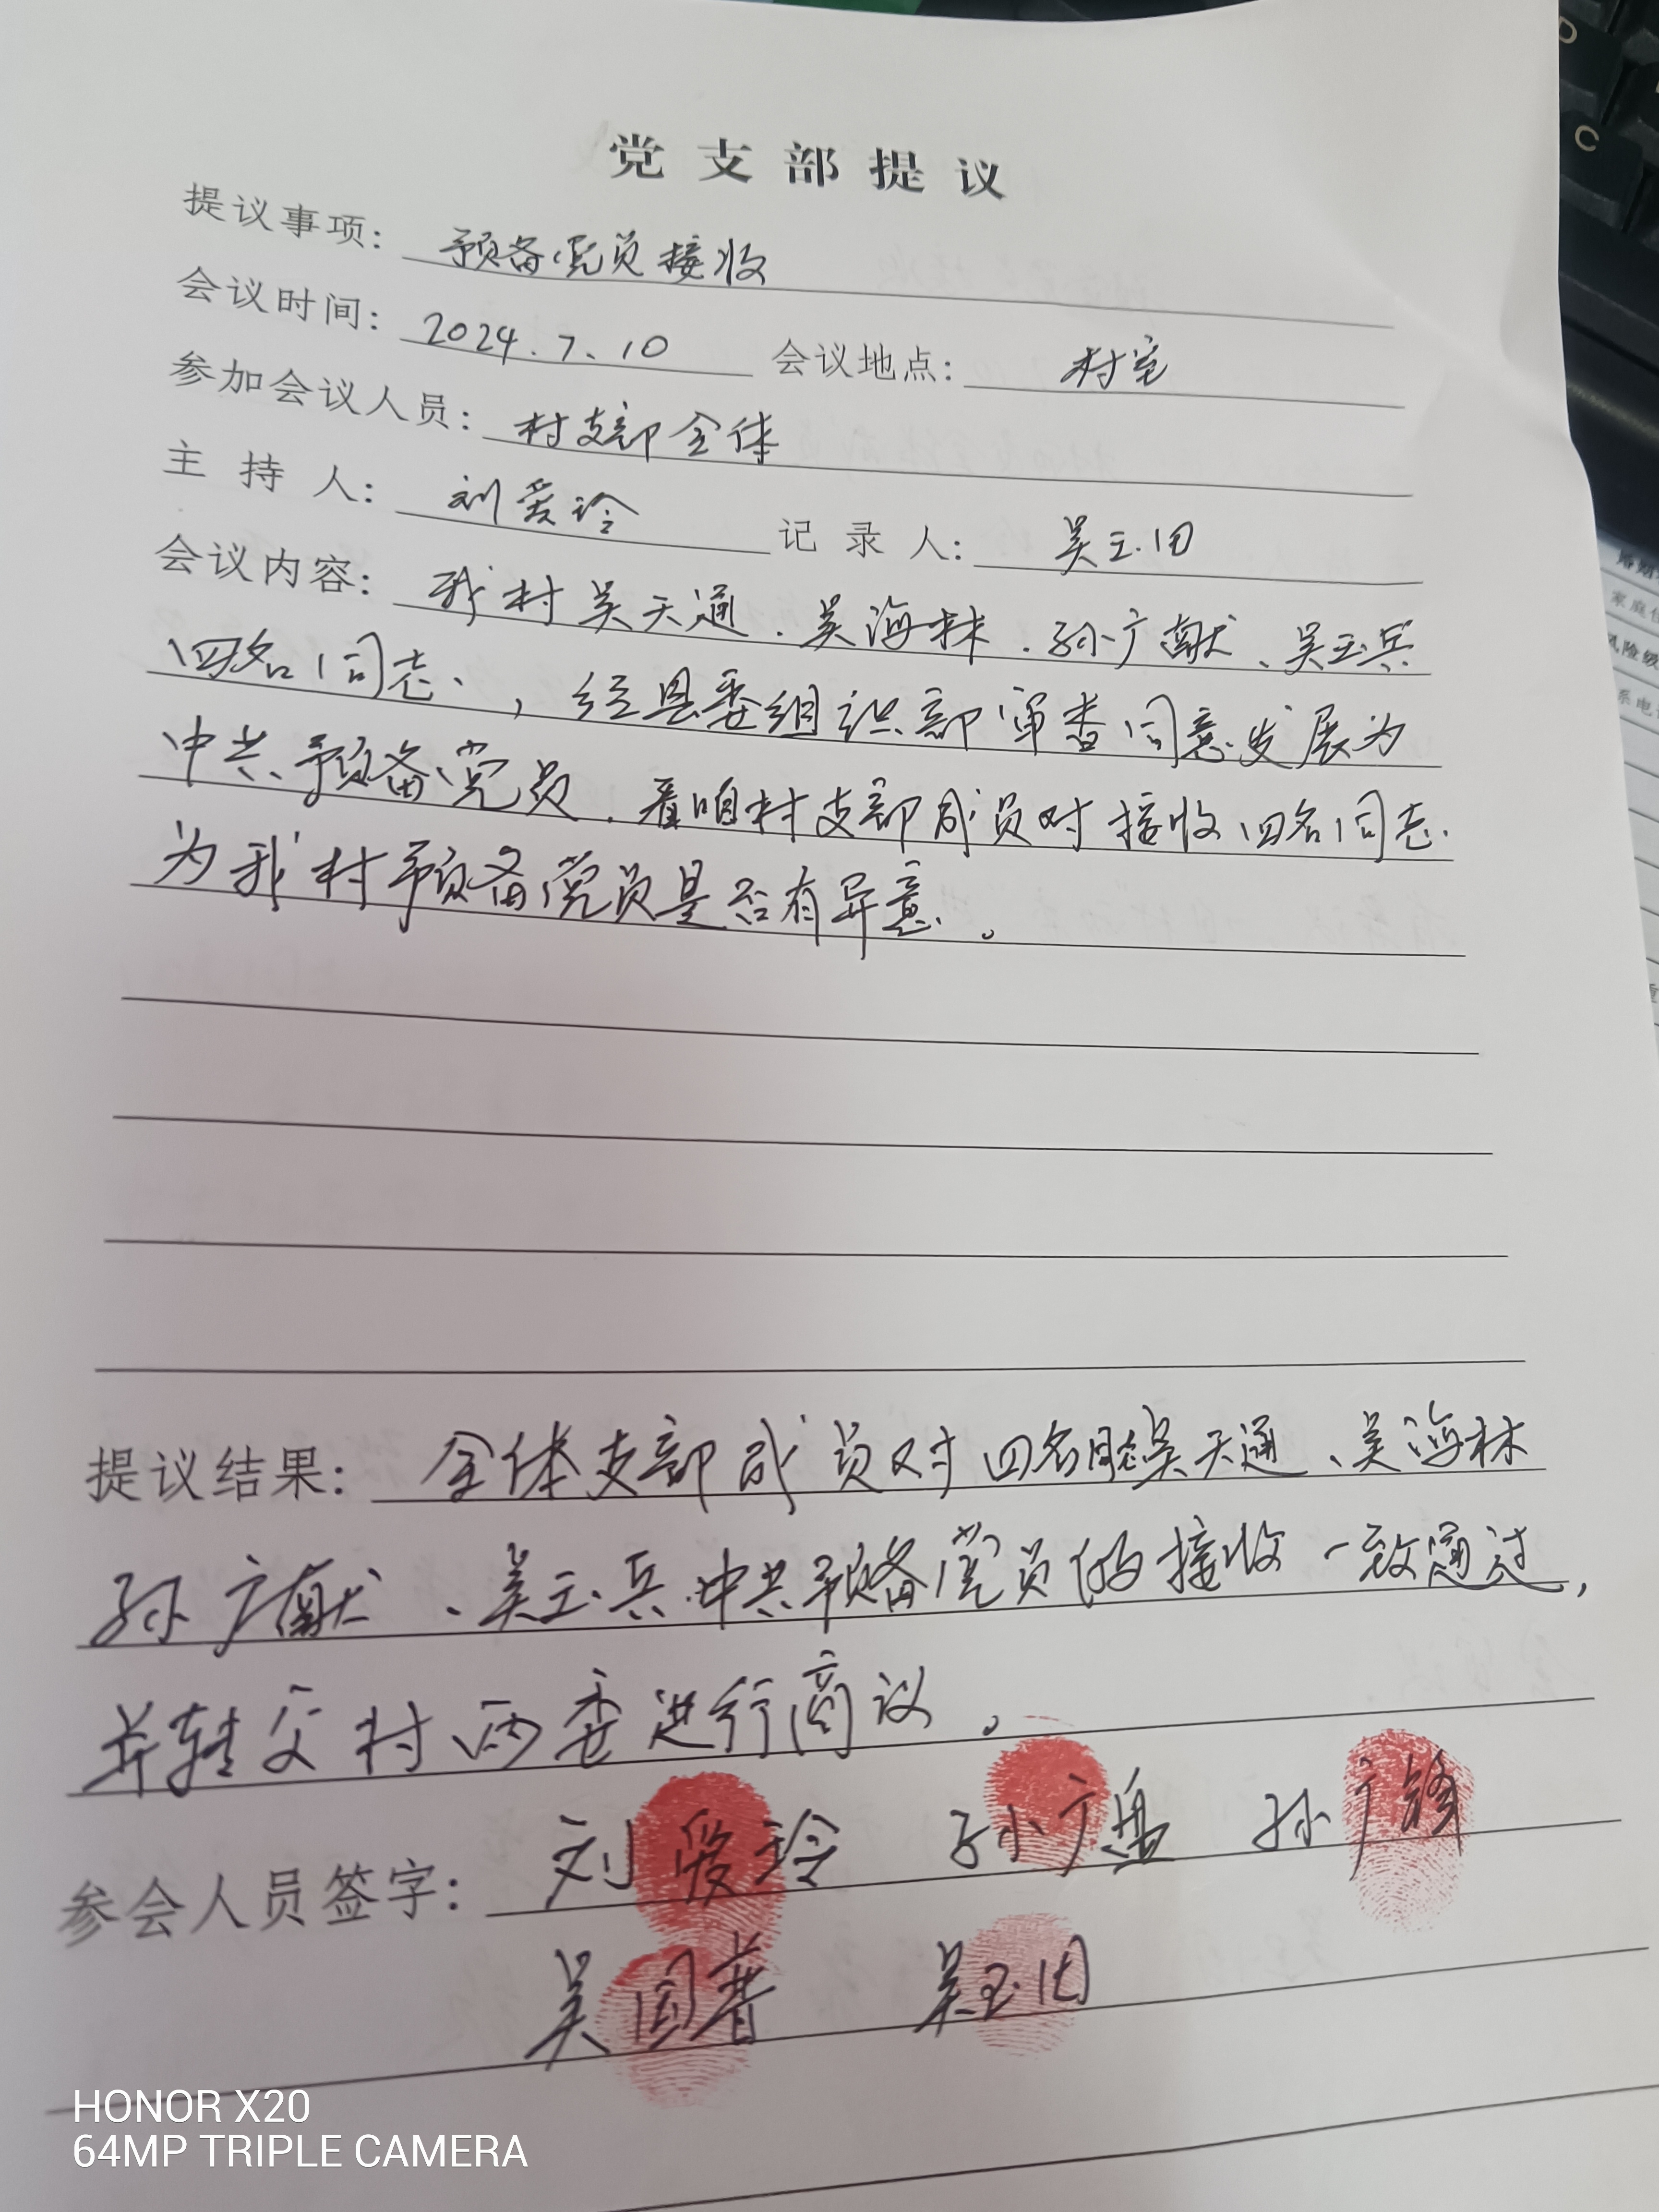 党支部提议
提议事项: 预备党员接收
会议时间: 2024.7.10 会议地点: 村室
参加会议人员: 村支部全体
主持人: 刘爱玲 记录人: 吴玉田
会议内容: 我村吴天通、吴海林、孙广献、吴玉兵
四名同志，经县委组识部审查同意发展为
中共预备党员，看咱村支部成员对接收四名同志
为我村预备党员是否有异意。
提议结果: 全体支部成员对四名同志吴天通、吴海林
孙广献、吴玉兵中共预备党员的接收一致通过，
并转交村两委进行商议。
参会人员签字: 刘爱玲 孙广 孙广锋
吴国 吴玉田
HONOR X20
64MP TRIPLE CAMERA
D
C
家庭住
风险级
系电话